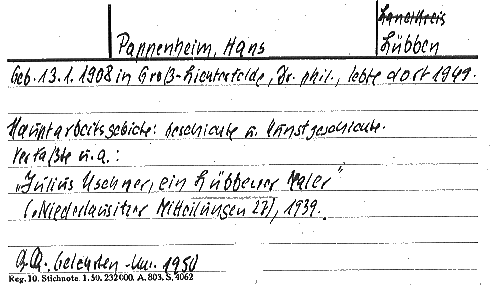 Landkreis
Pappenheim, Hans Lübben
Geb. 13.1.1908 in Groß-Lichterfelde, Dr. phil., lebte dort 1949.
Hauptarbeitsgebiete: Geschichte u. Kunstgeschichte.
Verfaßte u.a.:
„Julius Uschner, ein Lübbener Maler"
(„Niederlausitzer Mitteilungen 27), 1939.
Gelehrten- 1950
Reg. 10. Stichnote. 1. 50. 232000. A. 803. S. 4062